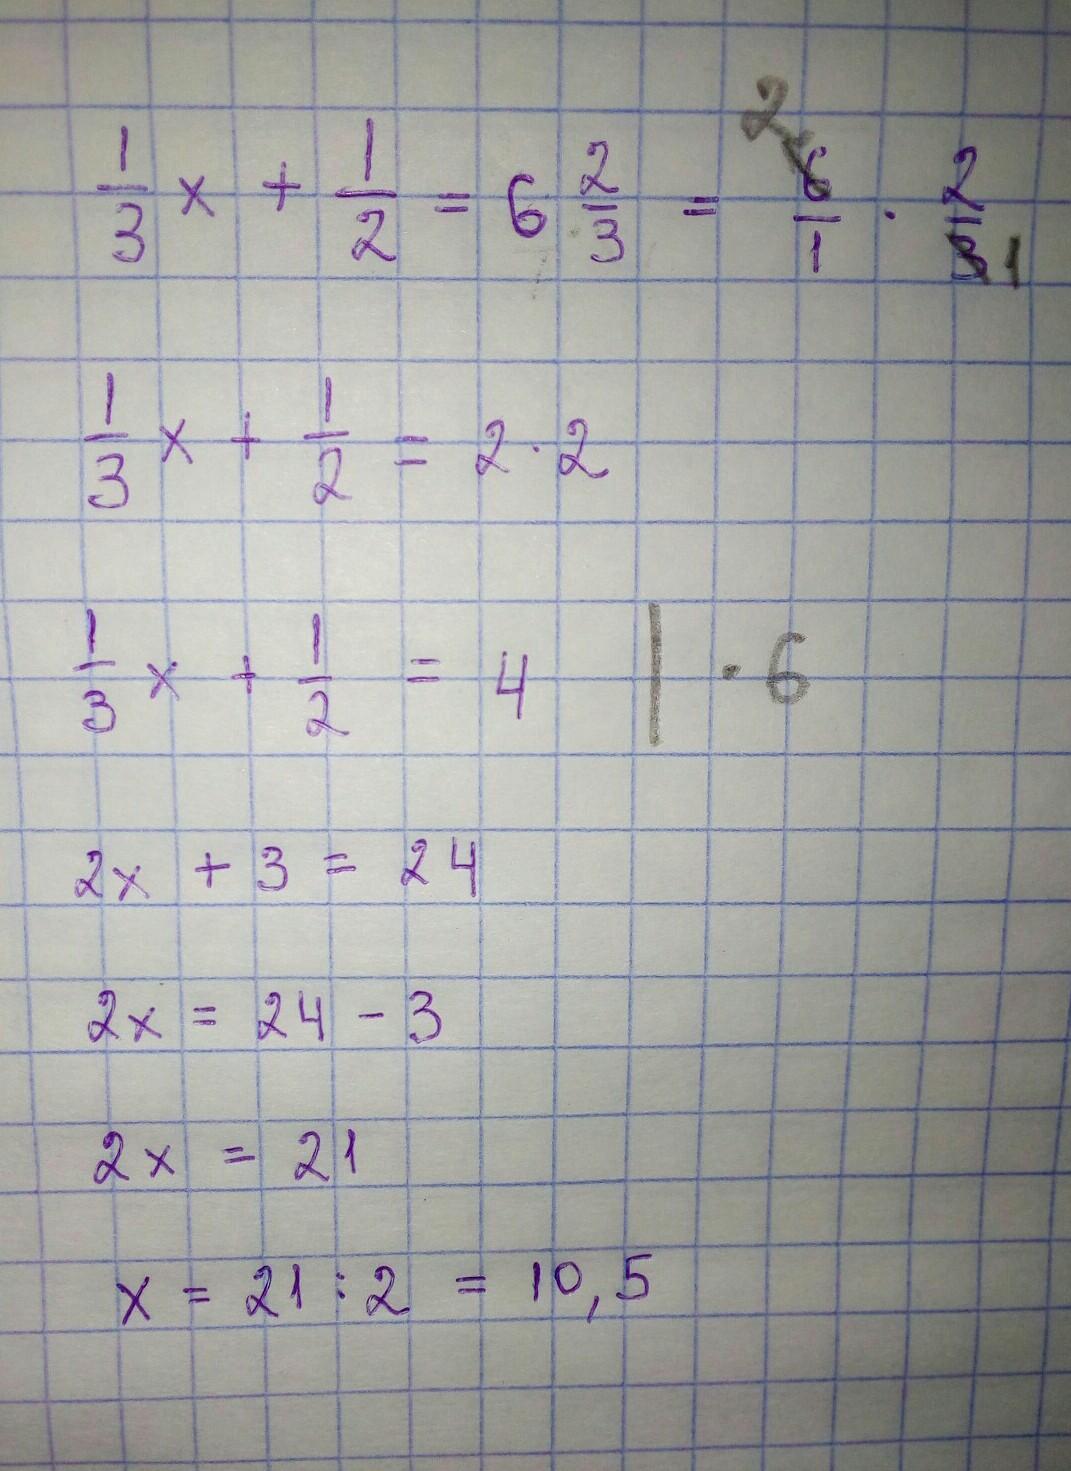 1/3 x + 1/2 = 6 2/3 = 2 6/1 · 2/3 1
1/3 x + 1/2 = 2 · 2
1/3 x + 1/2 = 4 | · 6
2x + 3 = 24
2x = 24 - 3
2x = 21
x = 21 : 2 = 10,5